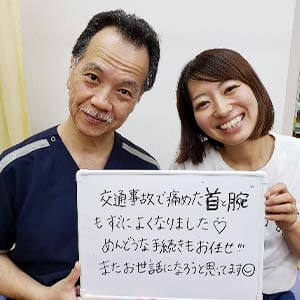 交通事故で痛めた"首と腕"
もすぐによくなりました♡
めんどうな手続きもお任せ!!!
またお世話になろうと思ってます☺